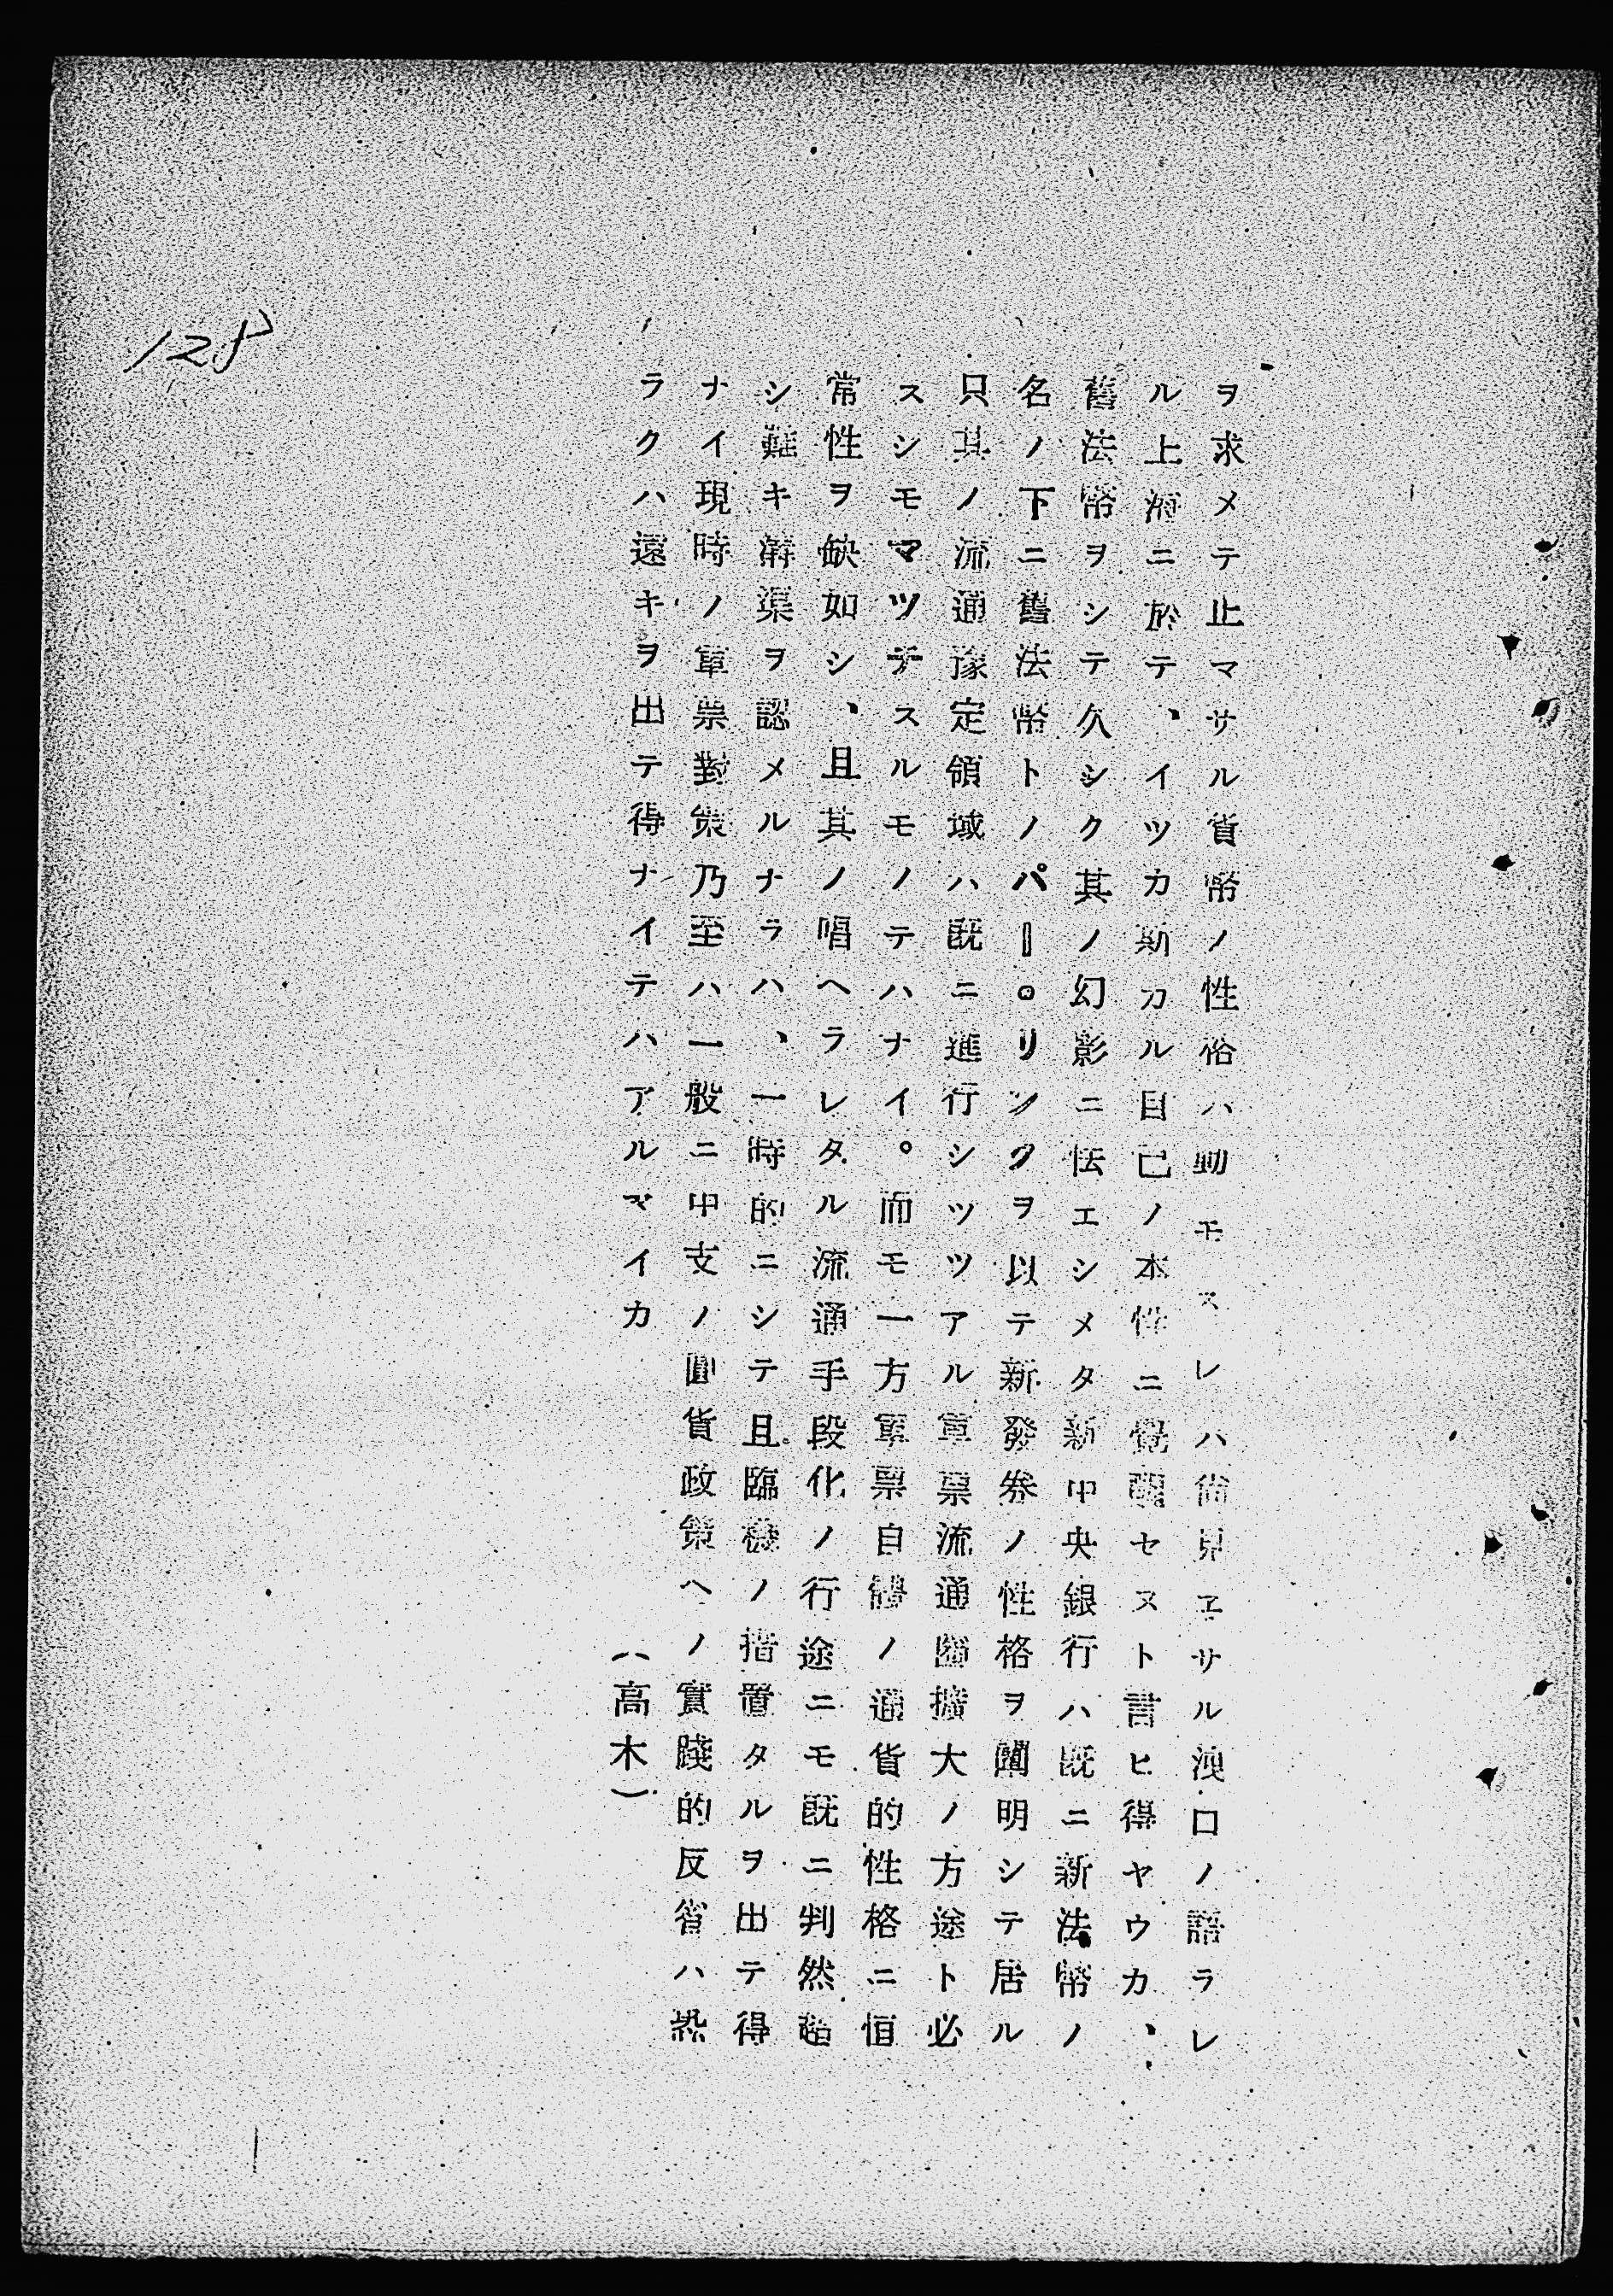 ヲ求メテ止マサル貨幣ノ性格ハ動モスレハ尚見エサル洩口ノ語ラレ
ル上海ニ於テ、イツカ斯カル自己ノ本性ニ覺醒セヌト言ヒ得ヤウカ、
舊法幣ヲシテ久シク其ノ幻影ニ怯エシメタ新中央銀行ハ既ニ新法幣ノ
名ノ下ニ舊法幣トノパー。リンクヲ以テ新發券ノ性格ヲ闡明シテ居ル
只其ノ流通豫定領域ハ既ニ進行シツツアル軍票流通圏擴大ノ方途ト必
スシモマツチスルモノテハナイ。而モ一方軍票自體ノ通貨的性格ニ恒
常性ヲ缺如シ、且其ノ唱ヘラレタル流通手段化ノ行途ニモ既ニ判然蹈
シ難キ溝渠ヲ認メルナラハ、一時的ニシテ且臨機ノ措置タルヲ出テ得
ナイ現時ノ軍票對策乃至ハ一般ニ中支ノ圓貨政策ヘノ實踐的反省ハ恐
ラクハ遠キヲ出テ得ナイテハアルマイカ
(高木)
128